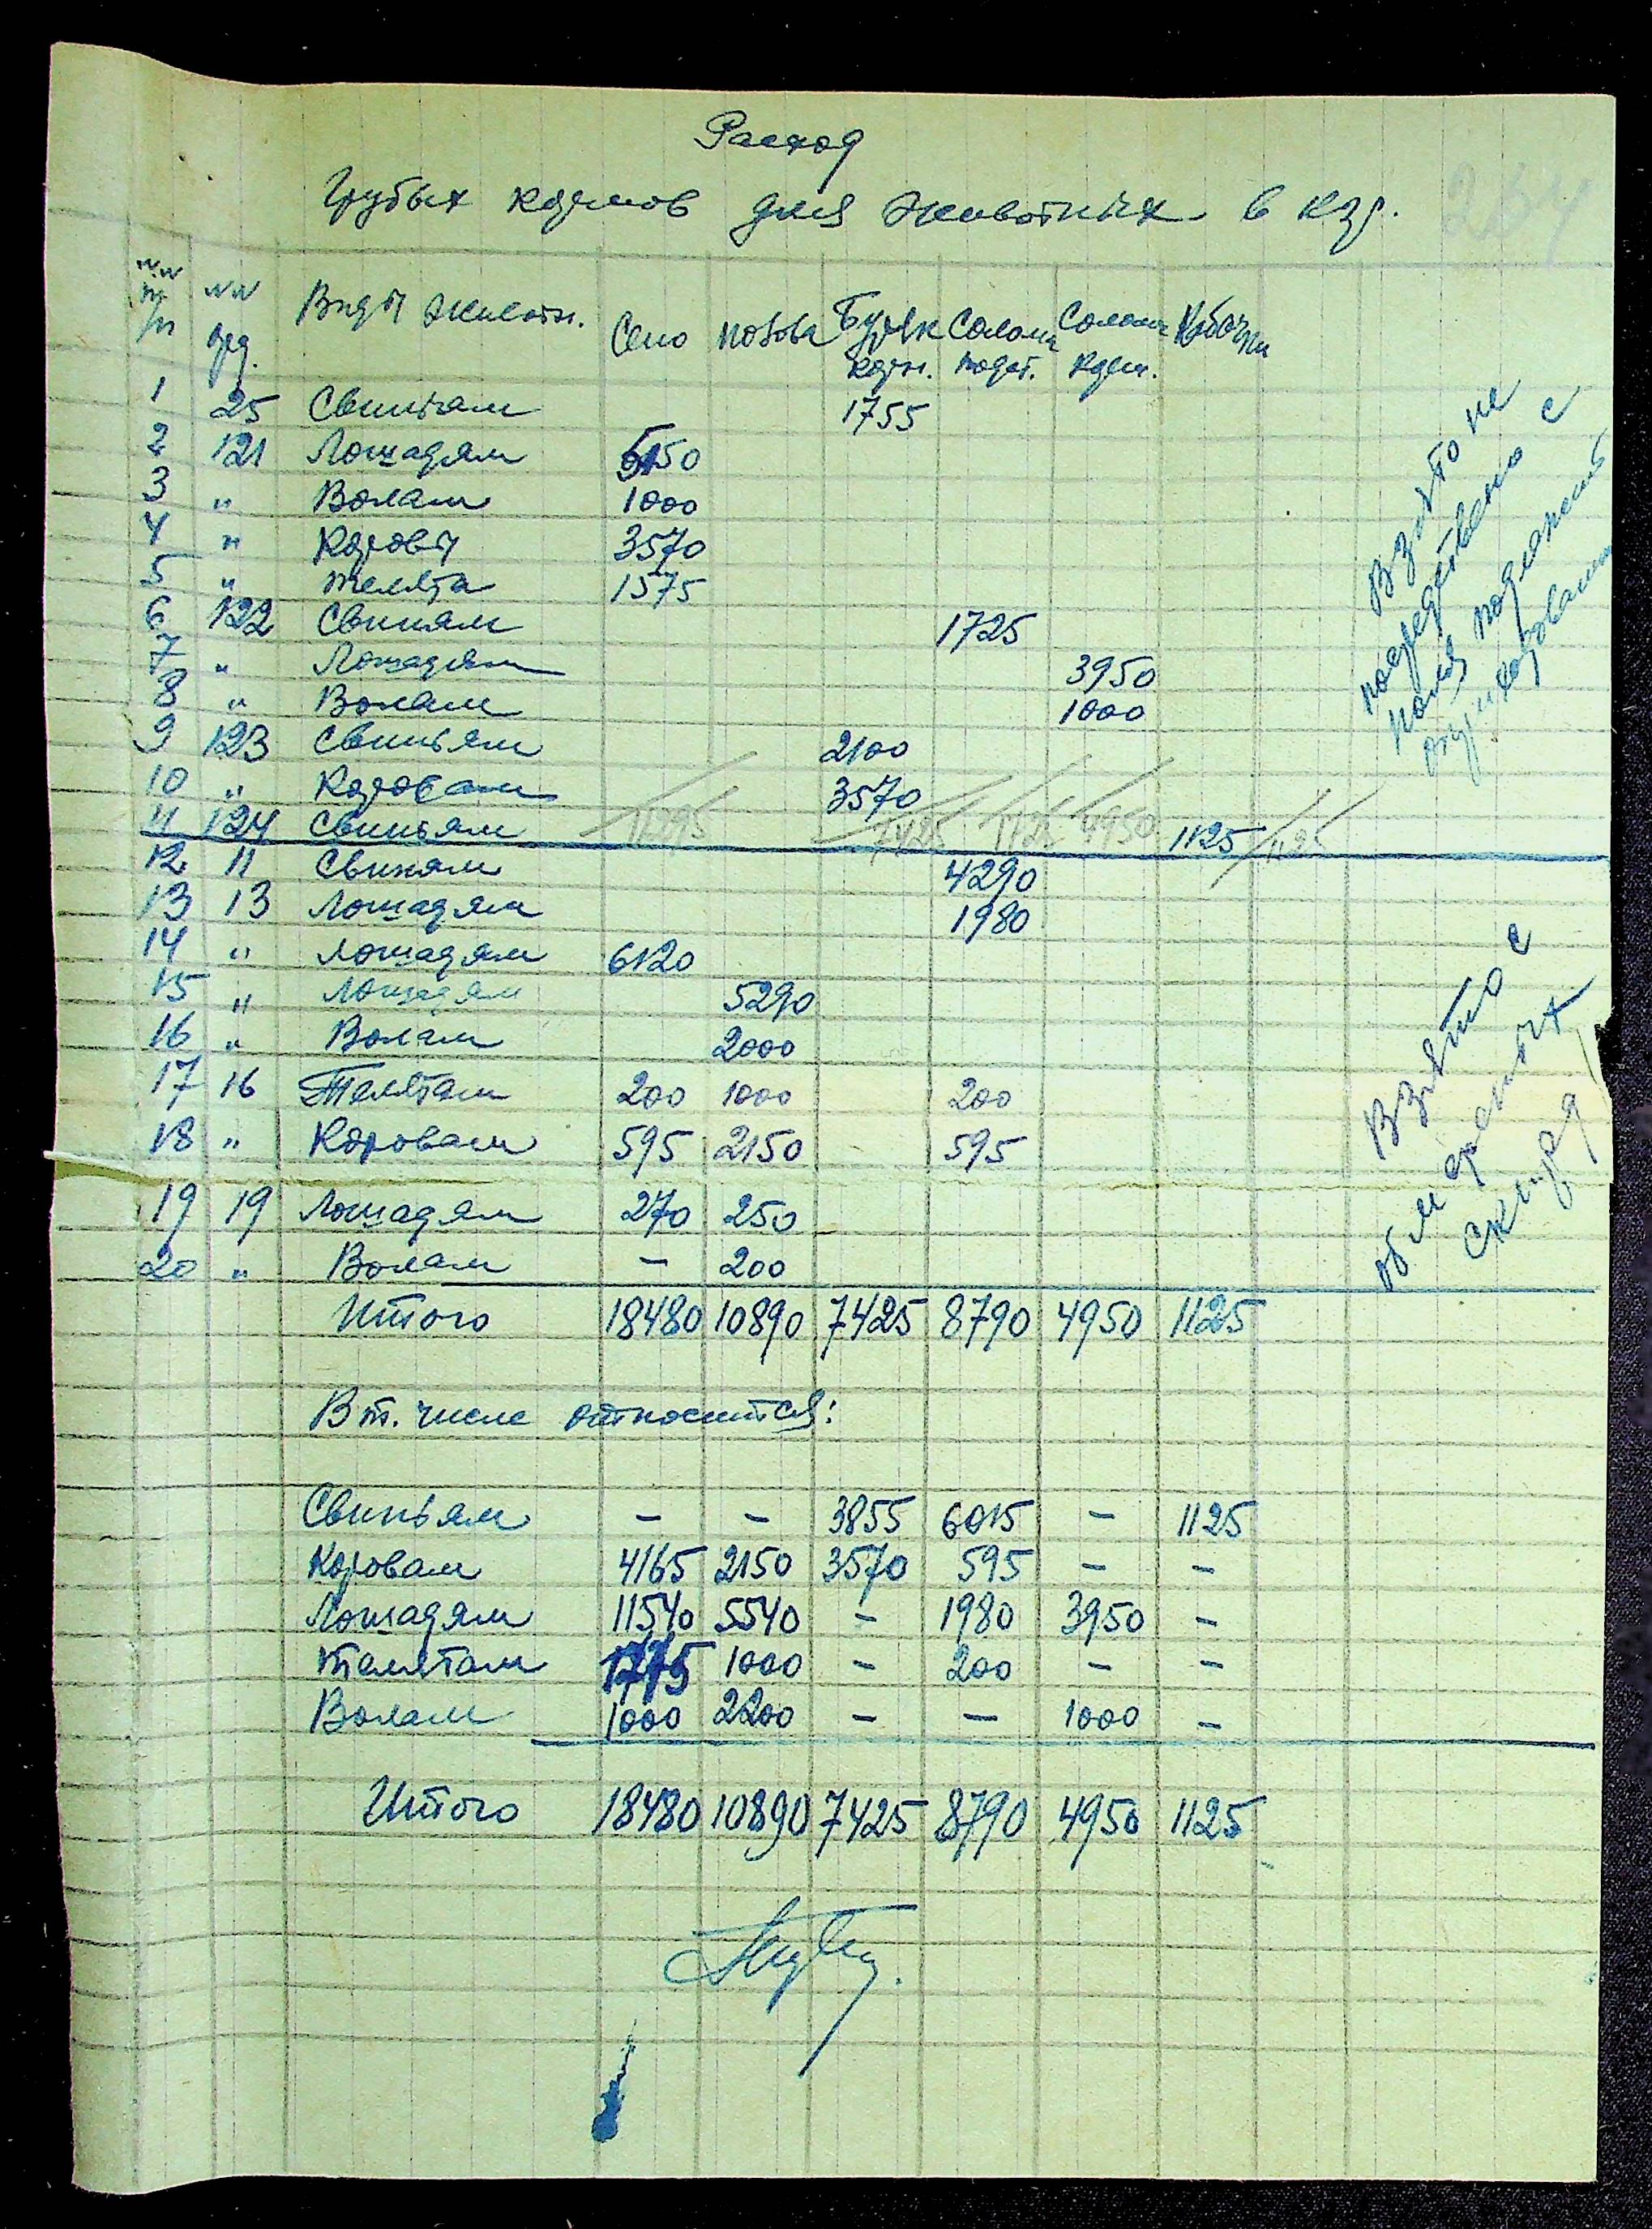 Расход
Грубых кормов для животных в кгр.
№№ п/п №№ орд. Виды животн. Сено полова Буряк корм. Солома подст. Солома корм. Кабачки
1 25 Свиньям 1755
2 121 Лошадям 5150
3 " Волам 1000
4 " Коровы 3570
5 " телята 1575
6 122 Свиням 1725
7 " Лошадям 3950
8 " Волам 1000
9 123 Свиньям 2100
10 " Коровам 3570
11 124 Свиньям 7425 1725 4950 1125 1125
12 11 Свиням 4290
13 13 Лошадям 1980
14 " Лошадям 6120
15 " Лошадям 5290
16 " Волам 2000
17 16 Телятам 200 1000 200
18 " Коровам 595 2150 595
19 19 Лошадям 270 250
20 " Волам — 200
Итого 18480 10890 7425 8790 4950 1125
В т. числе относится:
Свиньям — — 3855 6015 — 1125
Коровам 4165 2150 3570 595 — —
Лошадям 11540 5540 — 1980 3950 —
телятам 1775 1000 — 200 — —
Волам 1000 2200 — — 1000 —
Итого 18480 10890 7425 8790 4950 1125
Взято не
посредствено с
поля подлежит
оприходованию
Взято с
обмеренных
скирд